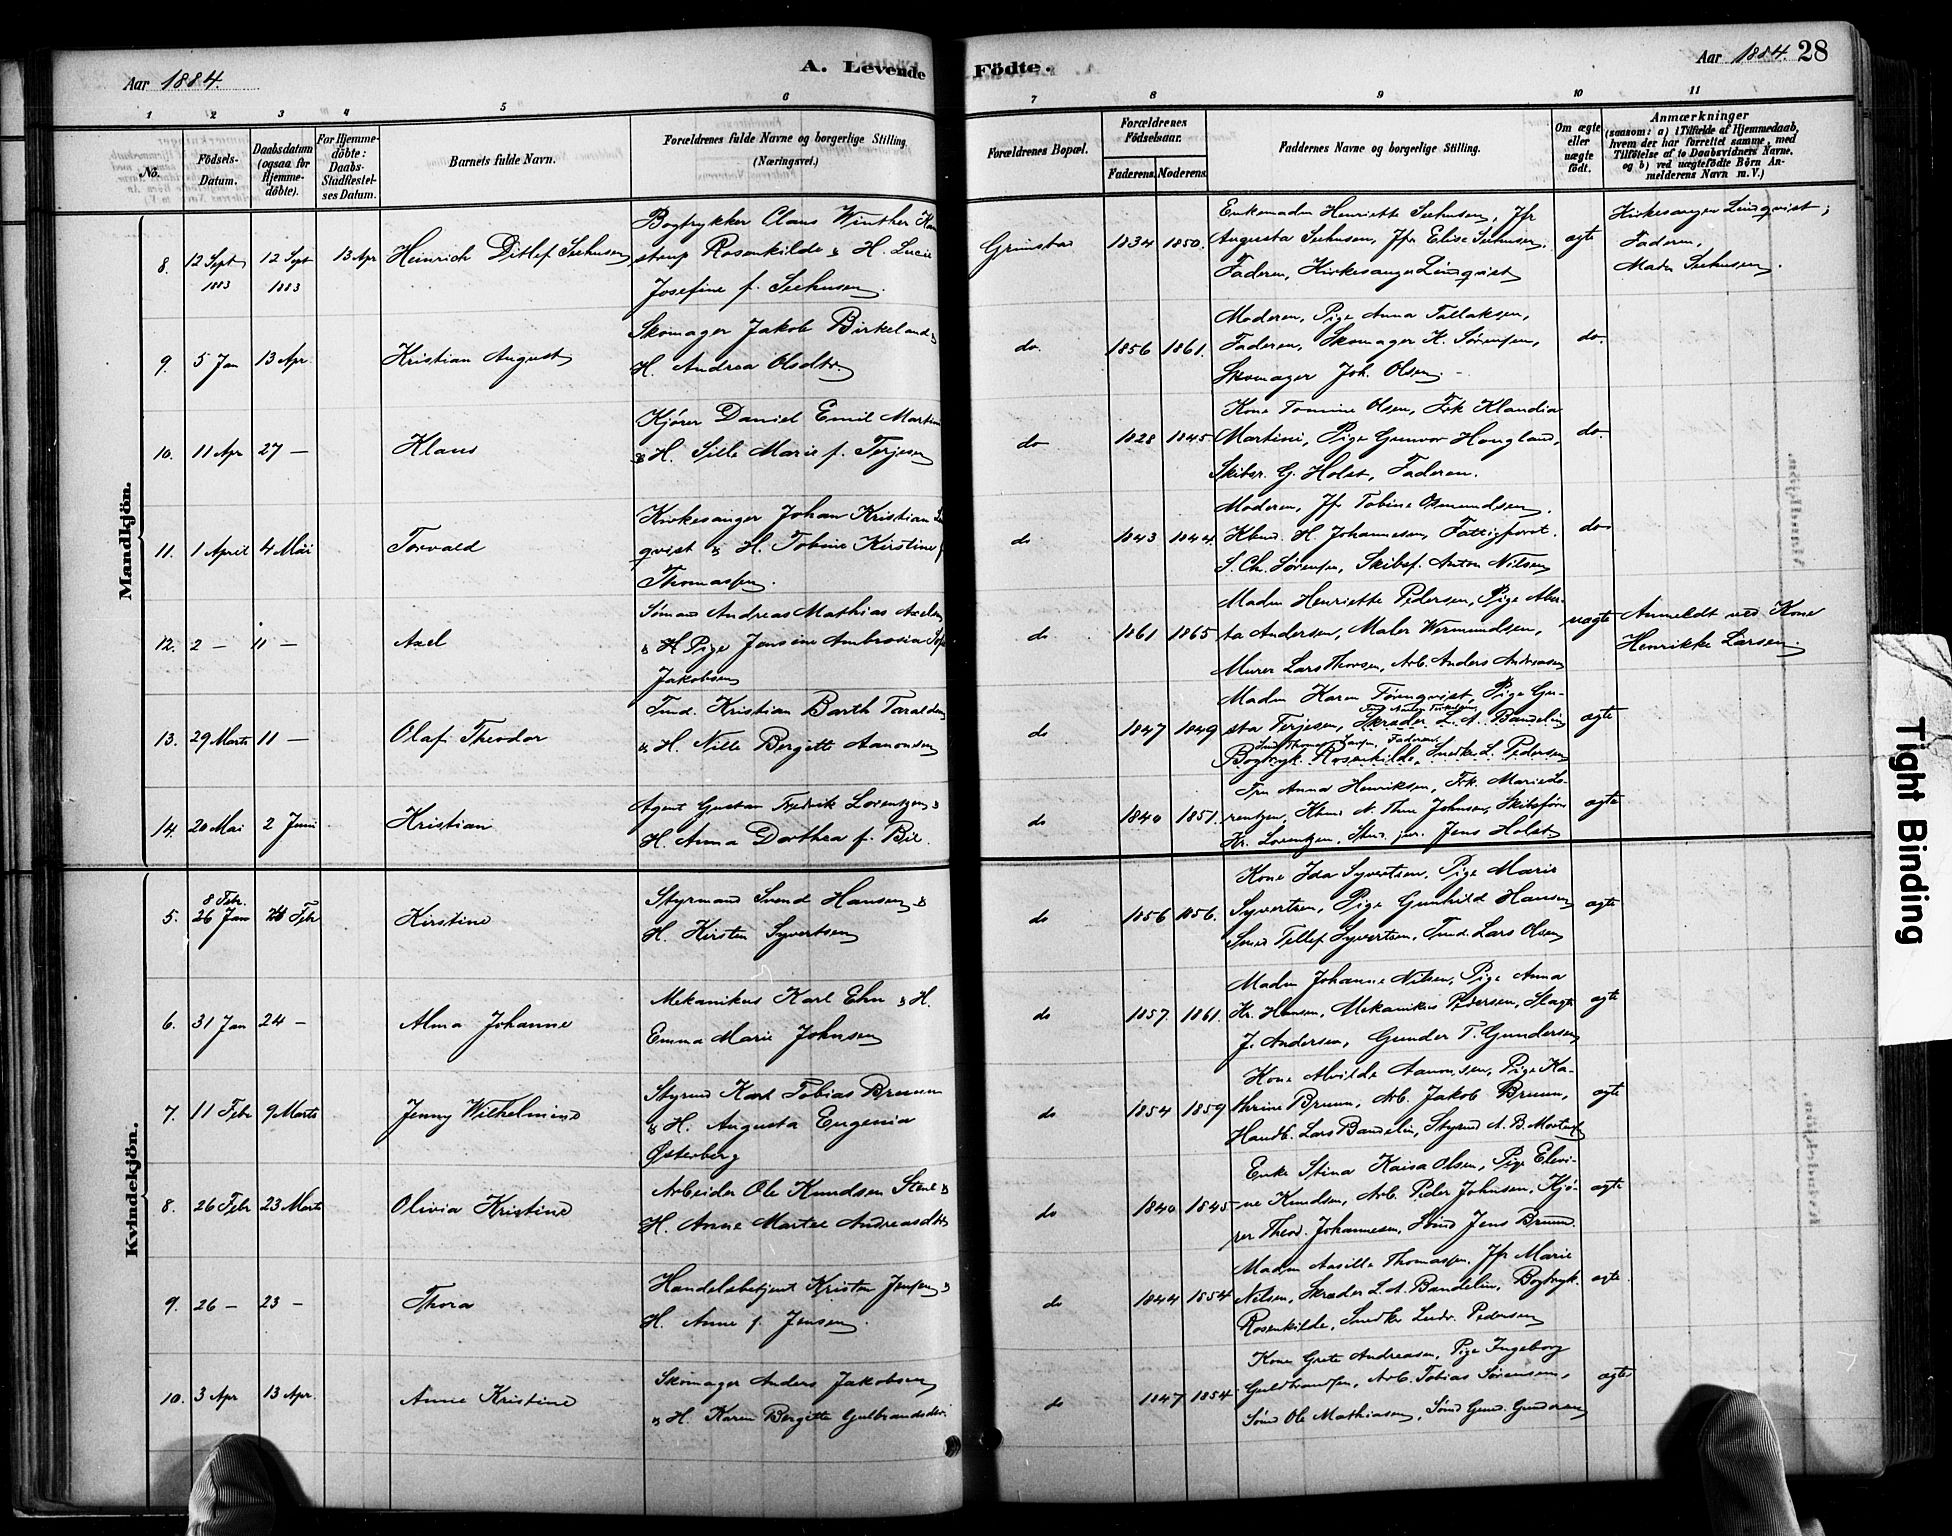 Aar 1884.
A. Levende
Födte.
Aar 1884.
28
1 2 3 4 5 6 7 8 9 10 11
No.
Födsels-Datum.
Daabsdatum (ogsaa for Hjemme-döbte).
For Hjemme-döbte: Daabs-Stadfestel-ses Datum.
Barnets fulde Navn.
Forældrenes fulde Navne og borgerlige Stilling
(Næringsvei.)
Forældrenes Bopæl.
Forældrenes Födselsaar.
Faderens.
Moderens.
Faddernes Navne og borgerlige Stilling.
Om ægte eller uægte födt.
Anmærkninger
(saasom: a) i Tilfælde af Hjemmedaab, hvem der har forrettet samme, med Tilföielse af to Daabsvidners Navne. og b) ved uægtefödte Börn An-melderens Navn m. V.)
Mandkjön.
8. 12 Sept 1883 12 Sept 1883 13 Apr Heinrich Ditlef Seehusen
Bogtrykker Claus Winther
strup Rosenkilde & H. Lucie
Josefine f. Seehusen
Grimstad 1834 1850.
Enkemadm Henriette Seehusen, Jfr
Augusta Seehusen, Jfr Elise Seehusen.
Faderen, Kirkesanger Lindqvist
ægte
Kirkesanger Lindqvist;
Faderen,
Madm Seehusen.
9. 5 Jan 13 Apr. Kristian August
Skomager Jakob Birkeland &
H. Andrea Olsdtr
do. 1856 1861.
Moderen, Pige Anna Tallaksen,
Faderen, Skomager K. Sørensen,
Skomager Joh. Olsen. -
do.
10. 11 Apr 27 — Klaus
Kjører Daniel Emil Martini
& H. Sille Marie f. Terjesen
do 1828 1845
Kone Tomine Olsen, Frk Klandia
Martini, Pige Gunvor Haugland,
Skibsr. G. Holst, Faderen.
do.
11. 1 April 4 Mai Torvald
Kirkesanger Johan Kristian
qvist & H. Tobine Kirstine f
Thomassen.
do 1843 1844.
Moderen, Jfr Tobine Osmundsen,
Kbmd. H. Johannesen, Fattigforst.
S. Chr. Sørensen, Skibsf. Anton Nilsen
do
12. 2 — 11 — Axel
Sømand Andreas Mathias Axelsen
& H Pige Jensine Ambrosia
Jakobsen
do 1861 1865
Madm Henriette Pedersen, Pige Alber-
ta Andersen, Maler Wermundsen,
Murer Lars Thorsen, Arb. Anders Andreasen
uægte
Anmeldt ved Kone
Henrikke Larsen.
13. 29 Marts 11 — Olaf Theodor
Tmd. Kristian Barth Taraldsen
& H. Nille Bergitte Aanonsen
do 1847 1849
Madm Karen Tørnqvist, Pige Gu-
sta Terjesen, Skræder L. A. Bandelin
Bogtryk. Rosenkilde, Snedker L. Pedersen
Faderen
ægte
14. 20 Mai 2 Juni Kristian
Agent Gustav Fredrik Lorentzen &
H. Anna Dorthea f. Bie.
do 1840 1851.
Fru Anna Henriksen, Frk. Marie Lo-
rentzen, Kbmd A. Thne Johnsen, Skibsfører
Kr. Lorentzen, Stud. jur. Jens Holst
ægte
Kvindekjön.
5. 8 Febr. 26 Jan 24 Febr Kirstine
Styrmand Svend Hansen &
H. Kirsten Syvertsen
do 1856 1856.
Kone Ida Syvertsen, Pige Marie
Syvertsen, Pige Gunhild Hansen
Sømd Tellef Syvertsen, Tmd. Lars Olsen
ægte
6. 31 Jan 24 — Alma Johanne
Mekanikus Karl Ehn & H.
Emma Marie Johnsen
do 1857. 1861.
Madm Johanne Nilsen, Pige Anna
Kr. Hansen, Mekanikus Pedersen, Slagter
J. Andersen, Gunder T. Gundersen
ægte
7. 11 Febr 9 Marts Jenny Wilhelmine
Styrmd Karl Tobias Bruun
& H. Augusta Eugenia
Østerberg
do 1854 1859
Kone Alvilde Aanonsen, Pige Ka-
thrine Bruun, Arb. Jakob Bruun,
Handb. Lars Bandelin, Styrmd A. B.
ægte
8. 26 Febr 23 Marts Olivia Kristine
Arbeider Ole Knudsen Stene &
H. Anne Martee Andreasdtr
do 1840 1845
Enke Stina Kaisa Olsen, Pige Elevi-
ne Knudsen, Arb. Peder Johnsen, Kjø-
rer Theod. Johannesen, Sømd Jens Bruun.
ægte
9. 26 — 23 — Thora
Handelsbetjent Krister Jensen &
H. Anne f. Jensen.
do 1844 1854
Madm Aasille Thomassen, Jfr Marie
Nilsen, Skræder L. A. Bandelin, Bogtryk.
Rosenkilde, Snedker Ludv. Pedersen
ægte
10. 3 Apr 13 Apr. Anne Kristine
Skomager Anders Jakobsen
& H. Karen Bergitte Gulbrandsdtr.
do 1847 1854
Kone Grete Andreasen, Pige Ingeborg
Guldbrandsen, Arb. Tobias Sørensen,
Sømd Ole Mathiasen, Sømd Gund. Gundersen
ægte
Tight Binding